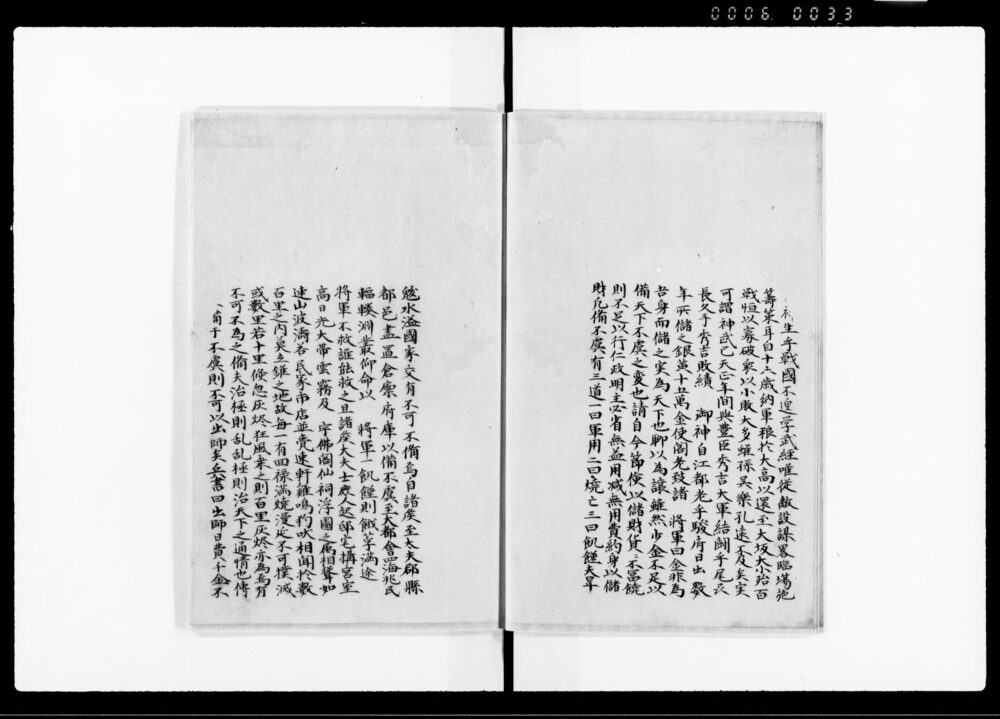 0006. 0033
生乎戰國不遑学武經唯従敵設謀畧臨塲施
籌策耳自十六歳納軍粮於大高以還至大坂大小殆百
戰恒以寡破衆以小敗大多雖孫吴樂孔遠不及矣实
可謂神武已天正年間與豊臣秀吉大軍結鬪乎尾
長久手秀吉敗績 御神自江都老乎駿府日出數
年所儲之銀蓋十五萬金使阁老致諸 將軍曰金非為
吾身而儲之実為天下也聊以為譲雖然少金不足以
備天下不虞之変也請自今節倹以儲財貨〻不富饒
則不足以行仁政明主必省無益用减無用費約身以儲
財凡備不虞有三道一曰軍用二曰燒亡三曰飢饉夫旱
水溢國家交有不可不備焉自諸矦至大夫郡縣
都邑盡置倉廪府庫以備不虞至大都會四海兆民
輻輳淵叢仰命以 將軍一飢饉則餓莩満途
將軍不救誰能救之且諸矦大夫士庶人起邸宅搆宮室
高日光大帝雲霧及 宇佛阁仙祠浮圖之属相聳如
連山波濤若民家市店並甍連軒雞鳴狗吠相聞於數
百里之内莫立錐之地故每一有回禄満燒漫延不可撲滅
或數里若十里倏忽灰烬狂風来之則百里灰烬亦為烏有
不可不為之備夫治極則乱乱極則治天下之通情也傳
備于不虞則不可以出師矣兵書曰出師日費千金不